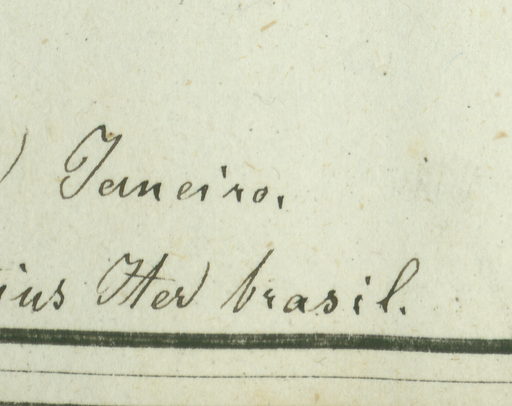 Janeiro.
ius Iter brasil.